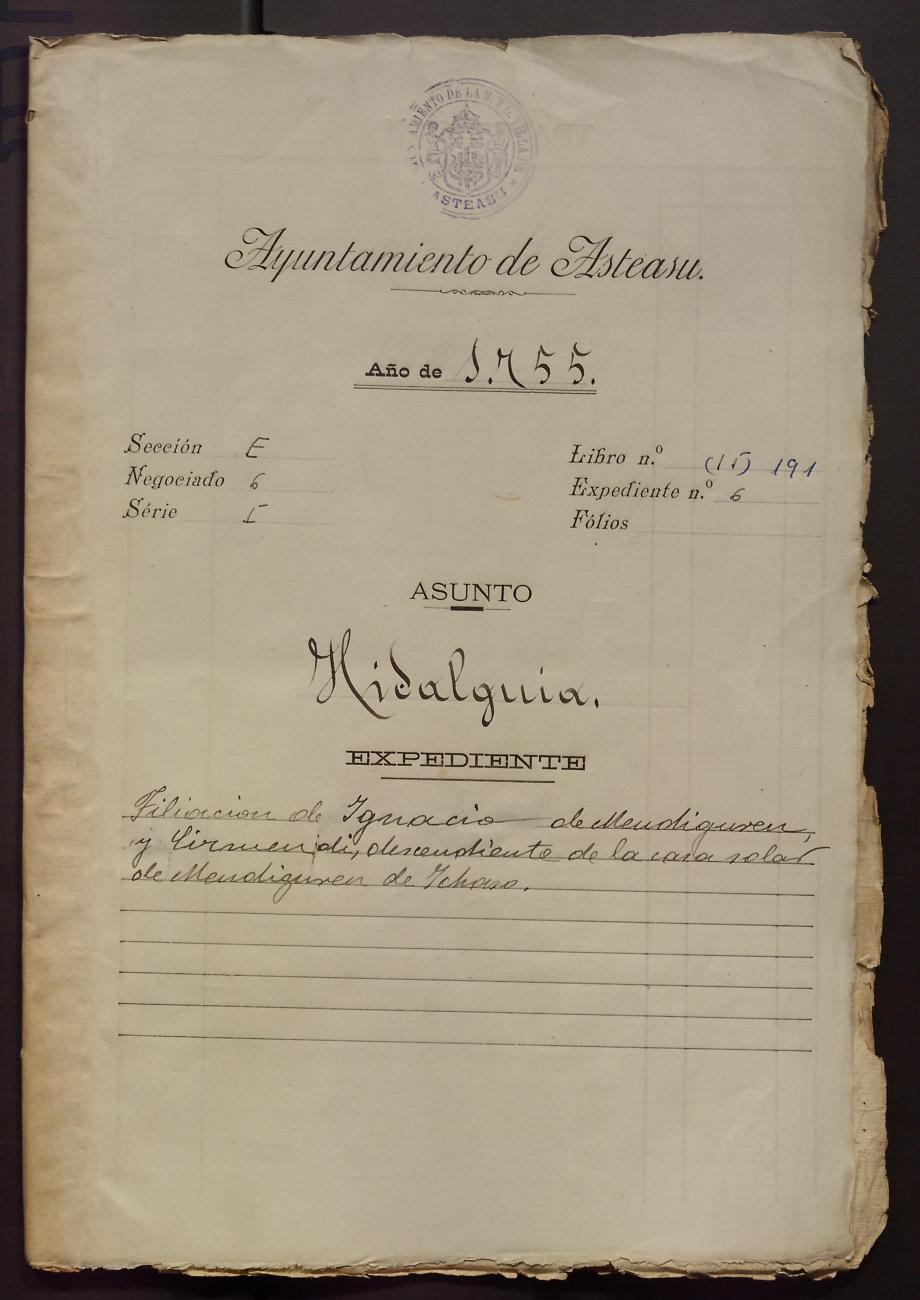 AYUNTAMIENTO DE LA N. Y L. VILLA DE
ASTEASU
Ayuntamiento de Asteasu.
Año de 1.755.
Sección E
Libro n.º (15) 191
Negociado 6
Expediente n.º 6
Série I
Fólios
ASUNTO
Hidalguia.
EXPEDIENTE
Filiacion de Ignacio de Mendiguren,
y Lirmendi, descendiente de la casa solar
de Mendiguren de Ichaso.